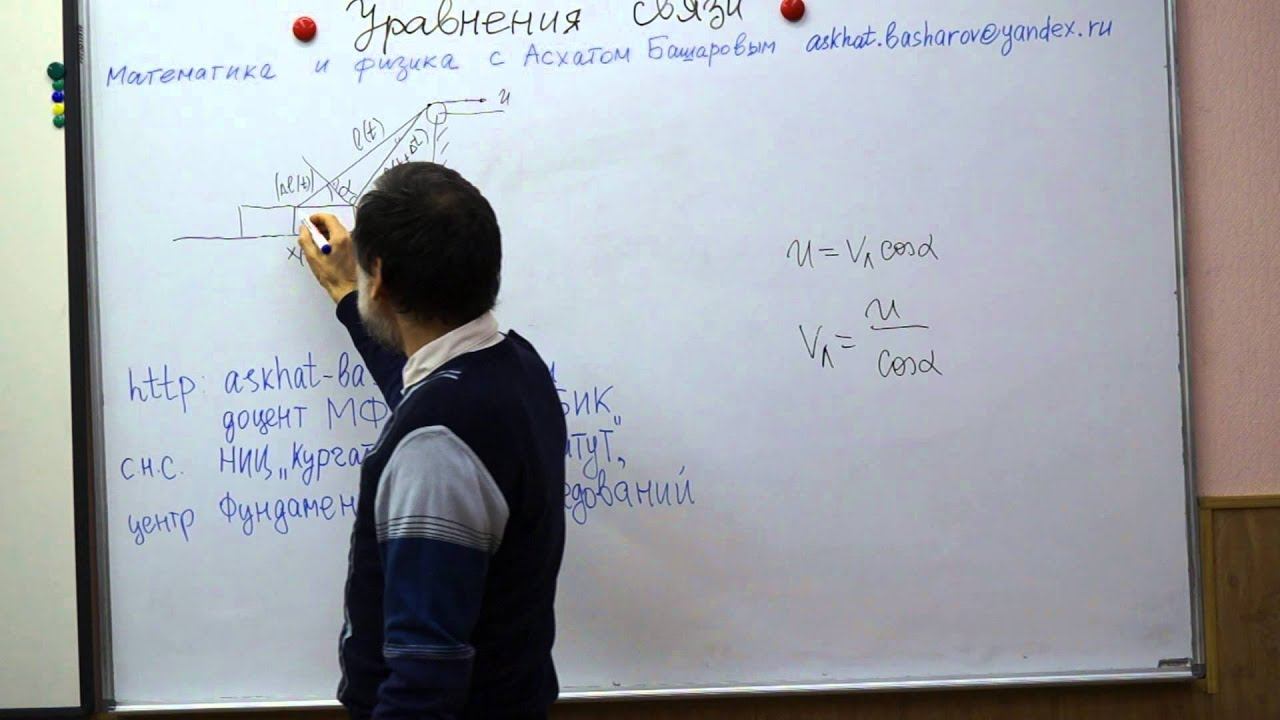 Уравнения связи
Математика и физика с Асхатом Башаровым askhat.basharov@yandex.ru
u
l(t)
|Δl(t)|
α
u = Vл cosα
Vл = u / cosα
http: askhat-ba
доцент МФ БИК"
с.н.с. НИЦ „Курчат итут",
центр Фундамен едований